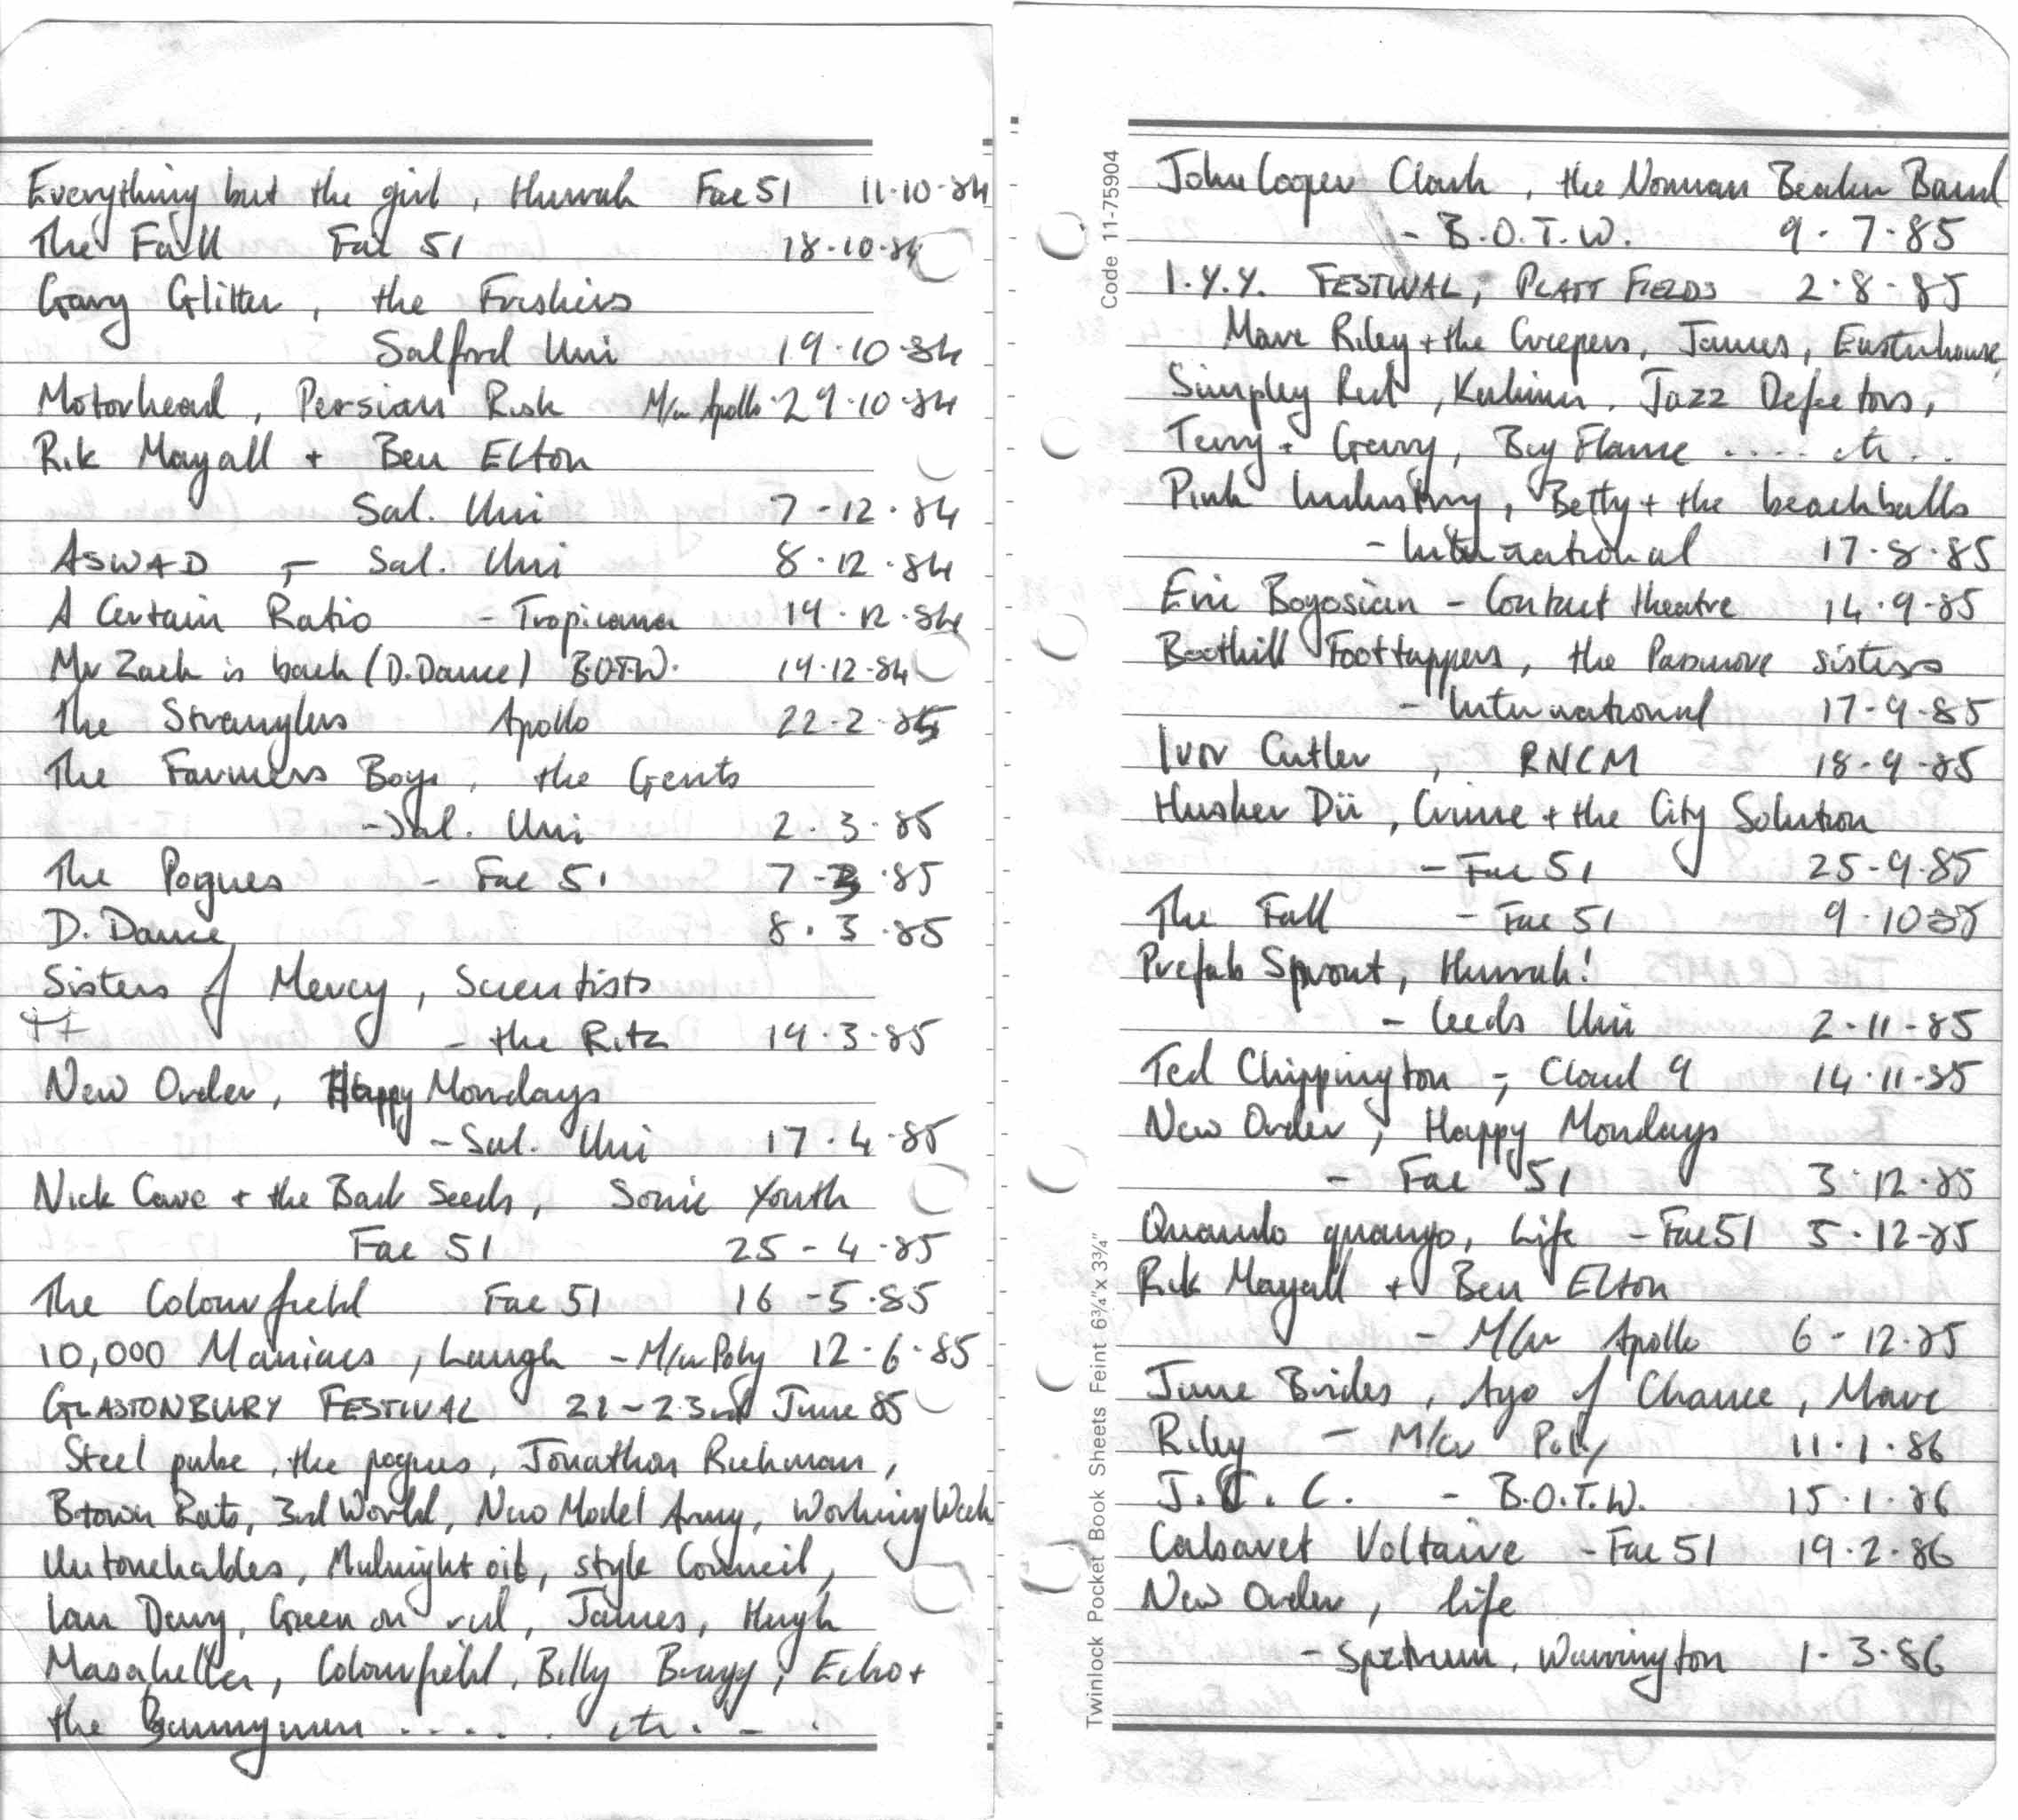 Everything but the girl, Hurrah Fac 51 11·10·84
The Fall Fac 51 18·10·84
Gary Glitter, the Freshies
Salford Uni 19·10·84
Motorhead, Persian Risk M/cr Apollo 29·10·84
Rik Mayall + Ben Elton
Sal. Uni 7-12·84
ASWAD - Sal. Uni 8·12·84
A Certain Ratio - Tropicana 19·12·84
Mr Zach is back (D.Dance) B.O.T.W. 19·12·84
The Stranglers Apollo 22-2-85
The Farmers Boys, the Gents
- Sal. Uni 2·3·85
The Pogues - Fac 51 7-3·85
D. Dance 8·3·85
Sisters of Mercy, Scientists
- the Ritz 19·3·85
New Order, Happy Mondays
- Sal. Uni 17·4·85
Nick Cave + the Bad Seeds, Sonic Youth
Fac 51 25-4·85
The Colourfield Fac 51 16-5·85
10,000 Maniacs, Laugh - M/cr Poly 12·6·85
GLASTONBURY FESTIVAL 21-23rd June 85
Steel pulse, the pogues, Jonathon Richman,
Btown Rats, 3rd World, New Model Army, Working Week
Untouchables, Midnight oil, style Council,
Ian Dury, Green on red, James, Hugh
Masakella, Colourfield, Billy Bragg, Echo +
the Bunnymen . . . . . etc. - .
Code 11-75904
Twinlock Pocket Book Sheets Feint 6¾" x 3¾"
John Cooper Clark, the Norman Beaker Band
- B.O.T.W. 9·7·85
I.Y.Y. FESTIVAL, PLATT FIELDS 2·8·85
Marc Riley + the Creepers, James, Easterhouse,
Simpley Red, Kalima, Jazz Defectors,
Terry + Gerry, Big Flame ..... etc . .
Pink Industry, Betty + the beachballs
- International 17·8·85
Eric Bogosian - Contact theatre 14·9·85
Boothill Foottappers, the Pasmore sisters
- International 17-9-85
Ivor Cutler, RNCM 18-9-85
Husker Dü, Crime + the City Solution
- Fac 51 25-9·85
The Fall - Fac 51 9·10 85
Prefab Sprout, Hurrah!
- Leeds Uni 2·11-85
Ted Chippington -, Cloud 9 14·11-85
New Order, Happy Mondays
- Fac 51 3·12·85
Quando quango, Life - Fac 51 5·12-85
Rik Mayall + Ben Elton
- M/cr Apollo 6-12·85
June Brides, Age of Chance, Marc
Riley - M/cr Poly 11·1·86
J.C.C. - B.O.T.W. 15·1·86
Cabaret Voltaire - Fac 51 19·2·86
New Order, Life
- Spectrum, Warrington 1·3·86